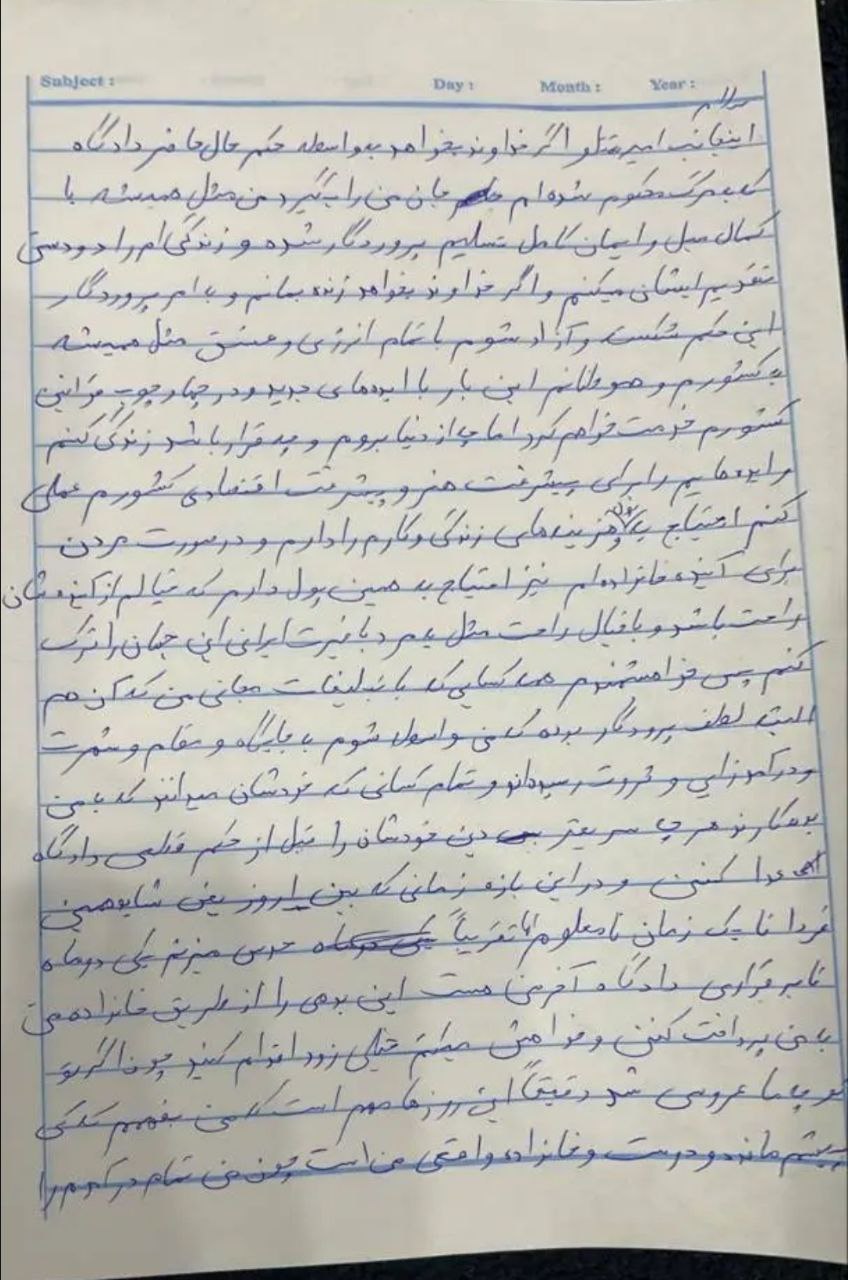 Subject : Day : Month : Year :
سلام
اینجانب امیر مقتلو اگر خداوند بخواهد بواسطه حکم حال حاضر دادگاه
که به مرگ محکوم شده ام جان من را بگیرد من مثل همیشه با
کمال میل و ایمان کامل تسلیم پروردگار شده و زندگی ام را دودستی
تقدیم ایشان میکنم و اگر خداوند بخواهد زنده بمانم و به امر پروردگار
این حکم شکست و آزاد شوم با تمام انرژی و عشق مثل همیشه
به کشورم و هموطنانم این بار با ایده های جدید و در چهارچوب قوانین
کشورم خدمت خواهم کرد اما چه از دنیا بروم و چه قرار باشد زندگی کنم
و ایده هایم را برای پیشرفت هنر و پیشرفت اقتصادی کشورم عملی
کنم احتیاج به پول هزینه های زندگی و کارم را دارم و در صورت مردن
برای آینده خانواده ام نیز احتیاج به همین پول دارم که خیالم از آینده شان
راحت باشد و با خیال راحت مثل یه مرد با غیرت ایرانی این جهان را ترک
کنم پس خواهشمندم همه کسایی که با تبلیغات مجانی من که آن هم
البته لطف پروردگار بوده که من واسطه شوم به جایگاه و مقام و شهرت
و درآمدزایی و ثروت رسیدند و تمام کسانی که خودشان میدانند که به من
بدهکارند هر چه سریعتر دین خودشان را قبل از حکم قطعی دادگاه
ادا کنن و در این بازه زمانی که بین امروز یعنی شاید همین
فردا تا یک زمان نامعلوم اما تقریباً حدس میزنم یکی دوماه
تا برقراری دادگاه آخر من هست این بدهی را از طریق خانواده من
به من پرداخت کنن و خواهش میکنم خیلی زود اقدام کنید چون اگر تو
کوچه ما عروسی شد دقیقاً این روزها مهم است که من بفهمم که کی
پیشم مانده و دوست و خانواده واقعی من است چون من تمام درآمدم را